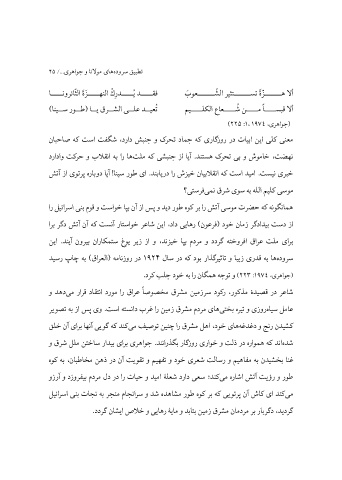 تطبیق سروده‌های مولانا و جواهری.../ ۲۵
ألا هـــزّةٌ تستـــثیر الشّـــعوبَ فقـــد یُـــدرِكُ النهـــزةَ الثّائرونـــا
ألا قبســـاً مـــن شُـــعاع الکلـــیم تُعیـد علـی الشـرق یـا (طـور سـینا)
(جواهری، ۱۹۷۴، ۱: ۲۲۵)
معنی کلی این ابیات در روزگاری که جماد تحرک و جنبش دارد، شگفت است که صاحبان
نهضت، خاموش و بی تحرک هستند. آیا از جنبشی که ملت‌ها را به انقلاب و حرکت وادارد
خبری نیست. امید است که انقلابیان خیزش را دریابند. ای طور سینا! آیا دوباره پرتوی از آتش
موسی کلیم الله به سوی شرق نمی‌فرستی؟
همانگونه که حضرت موسی آتش را بر کوه طور دید و پس از آن بپا خواست و قوم بنی اسرائیل را
از دست بیدادگر زمان خود (فرعون) رهایی داد، این شاعر خواستار آنست که آن آتش دگر برا
برای ملت عراق افروخته گردد و مردم بپا خیزند، و از زیر یوغ ستمکاران بیرون آیند. این
سروده‌ها به قدری زیبا و تاثیرگذار بود که در سال ۱۹۲۴ در روزنامه (العراق) به چاپ رسید
(جواهری، ۱۹۷۴: ۲۲۳) و توجه همگان را به خود جلب کرد.
شاعر در قصیدة مذکور، رکود سرزمین مشرق مخصوصاً عراق را مورد انتقاد قرار می‌دهد و
عامل سیه‌روزی و تیره بختی‌های مردم مشرق زمین را غرب دانسته است. وی پس از به تصویر
کشیدن رنج و دغدغه‌های خود، اهل مشرق را چنین توصیف می‌کند که گویی آنها برای آن خلق
شده‌اند که همواره در ذلت و خواری روزگار بگذرانند. جواهری برای بیدار ساختن ملل شرق و
غنا بخشیدن به مفاهیم و رسالت شعری خود و تفهیم و تقویت آن در ذهن مخاطبان، به کوه
طور و رؤیت آتش اشاره می‌کند؛ سعی دارد شعلة امید و حیات را در دل مردم بیفروزد و آرزو
می‌کند ای کاش آن پرتویی که بر کوه طور مشاهده شد و سرانجام منجر به نجات بنی اسرائیل
گردید، دگربار بر مردمان مشرق زمین بتابد و مایة رهایی و خلاص ایشان گردد.